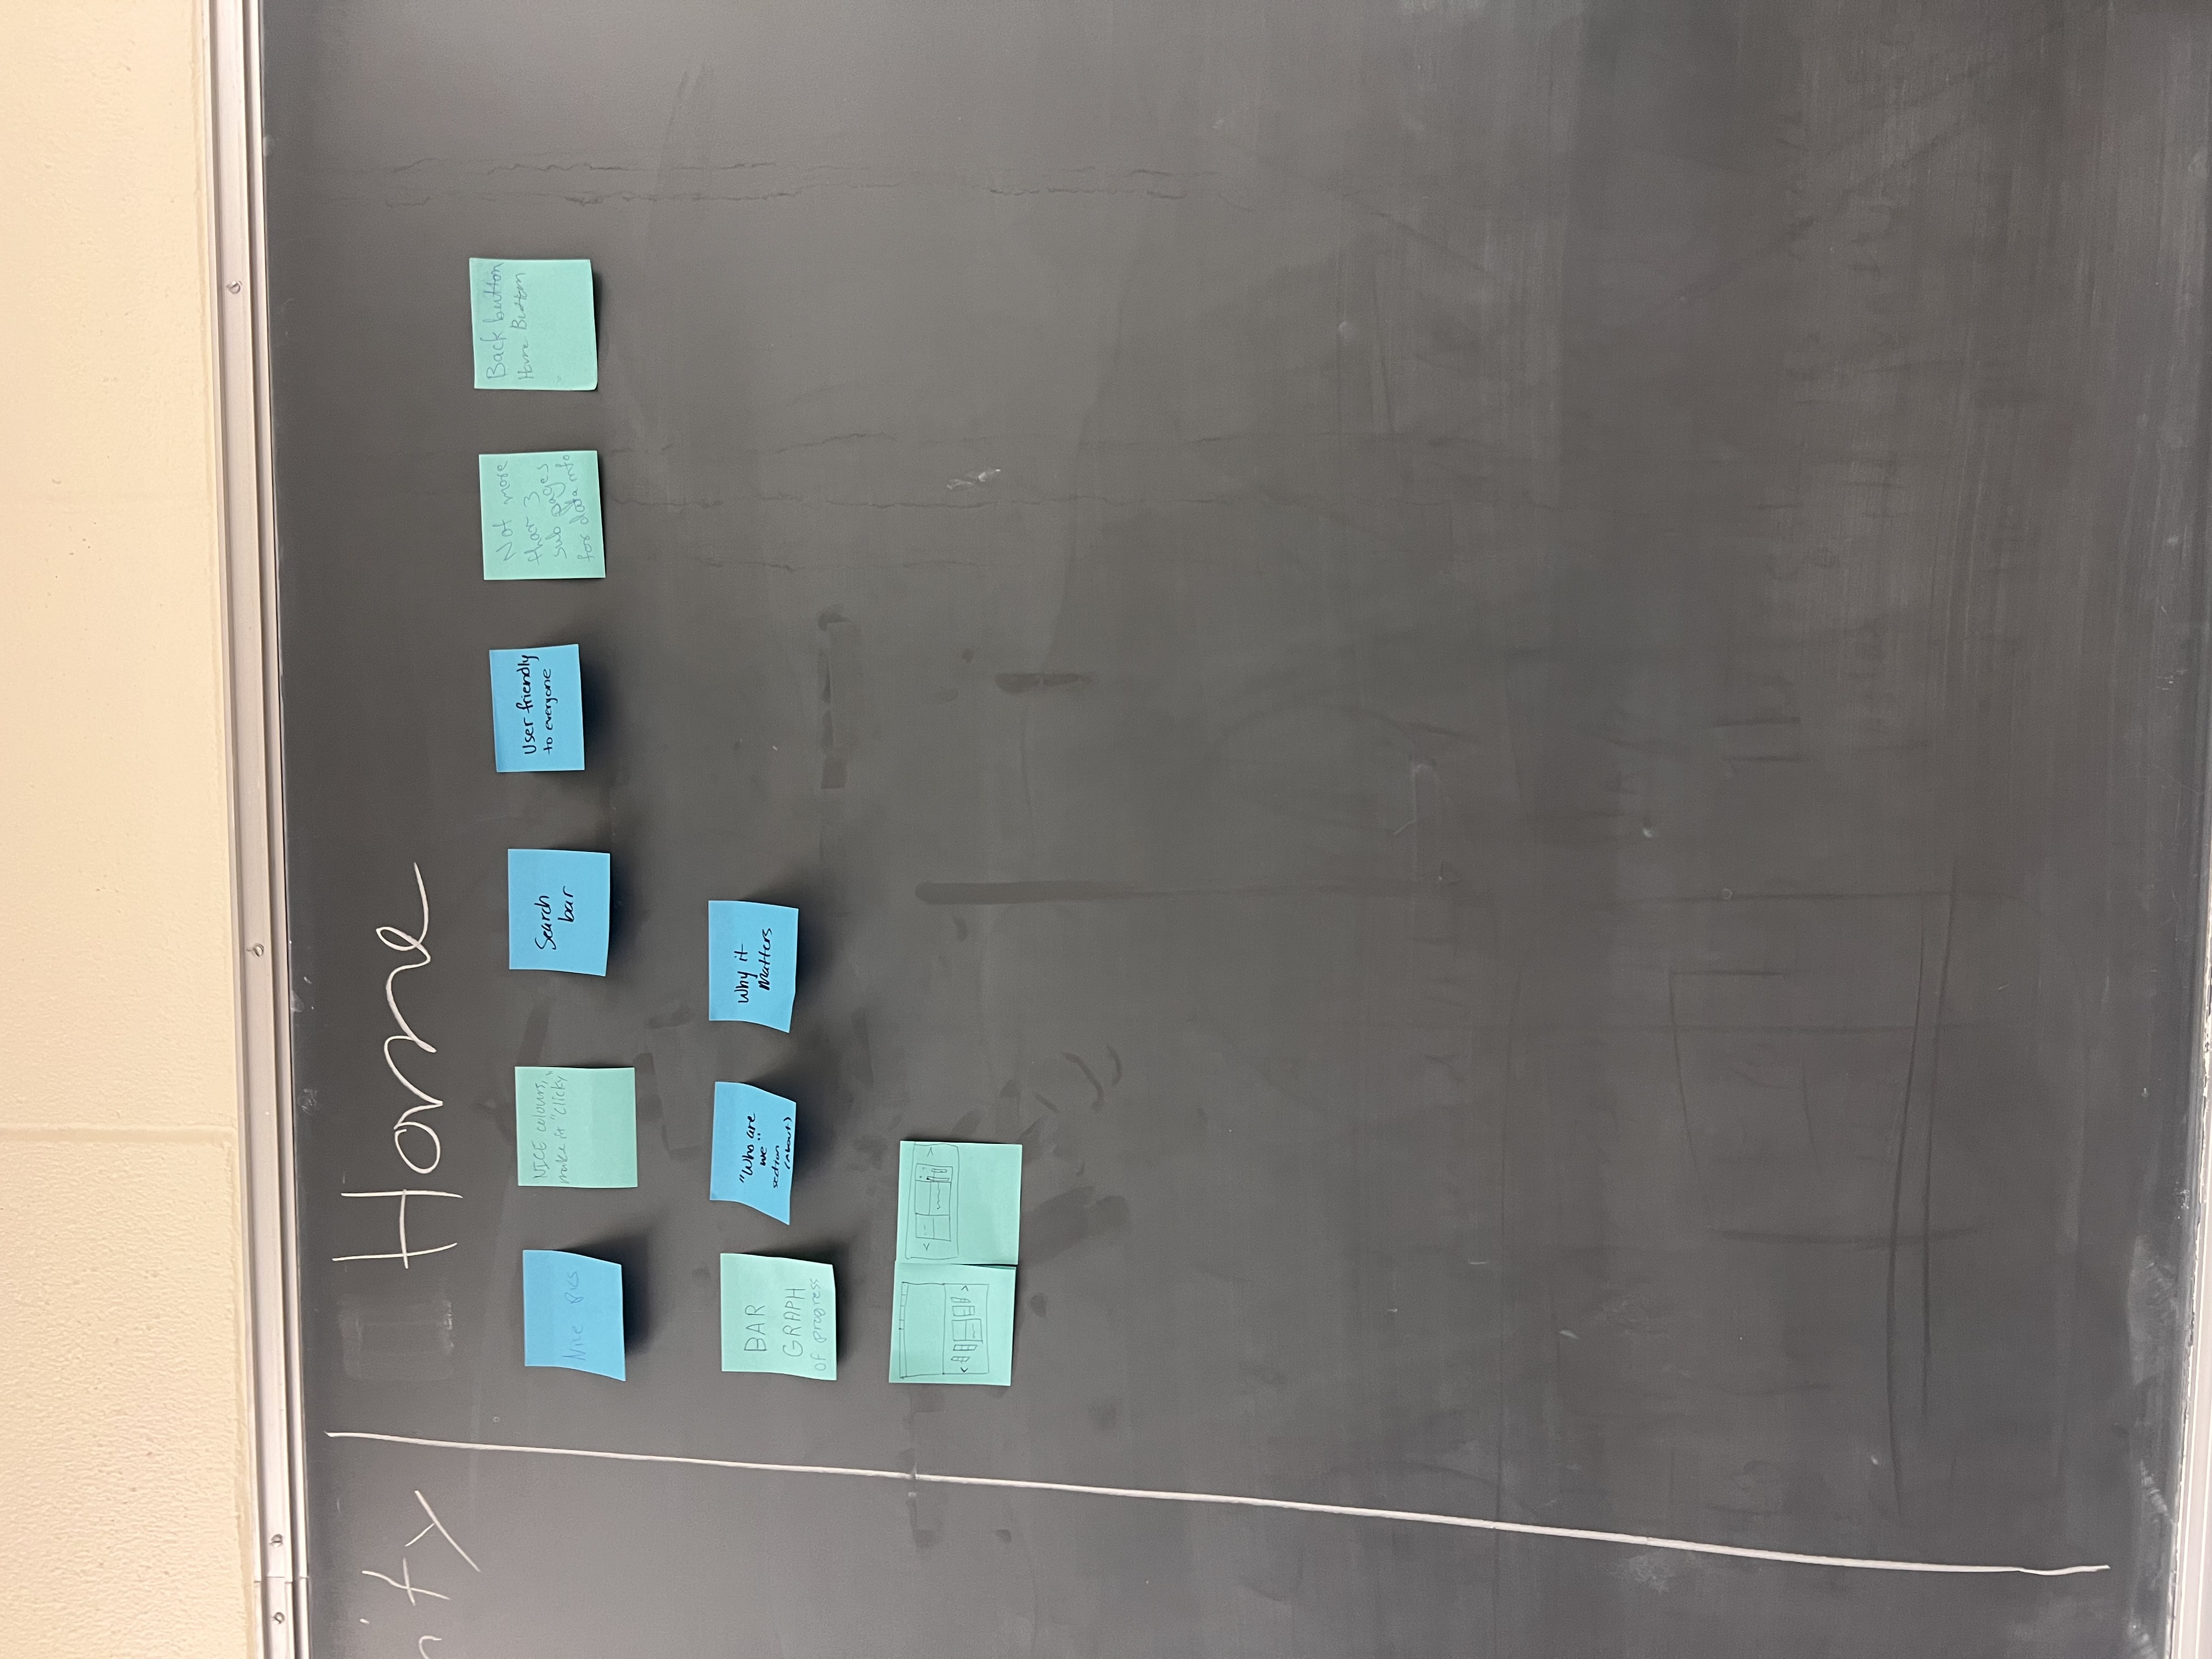 nity
Home
Nice pics
NICE colours,
make it "Clicky"
Search
bar
User friendly
to everyone
Not more
than 3
sub pages
for data info
Back button
Home Button
BAR
GRAPH
of progress
"Who are
we"
section
(About)
Why it
Matters